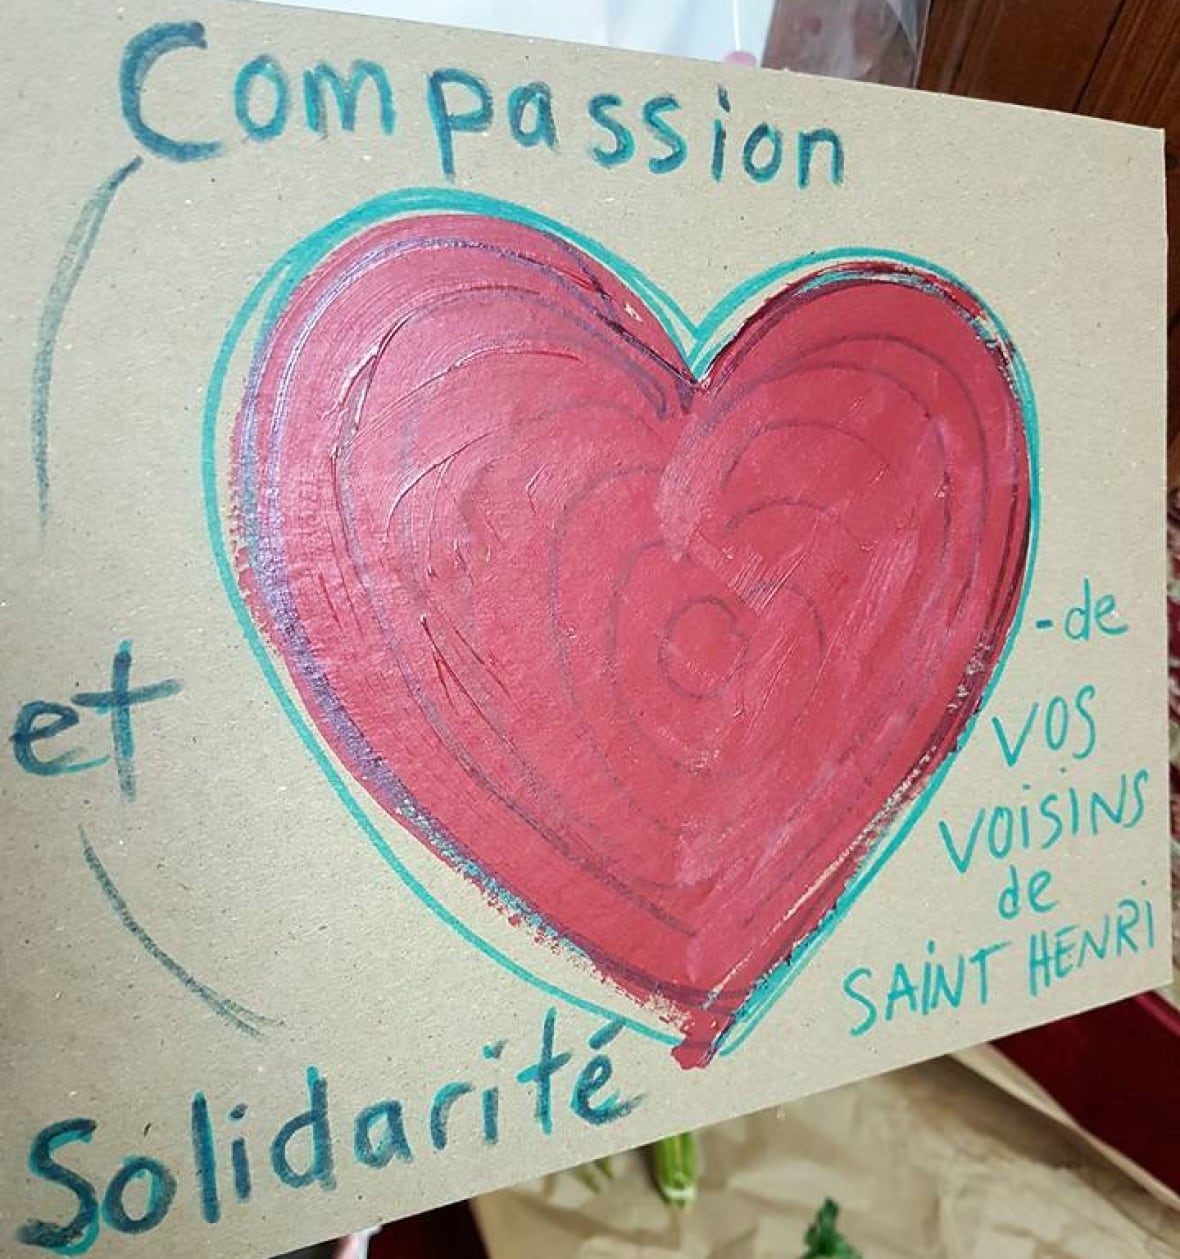 Compassion
et
Solidarité
-de
vos
voisins
de
SAINT HENRI